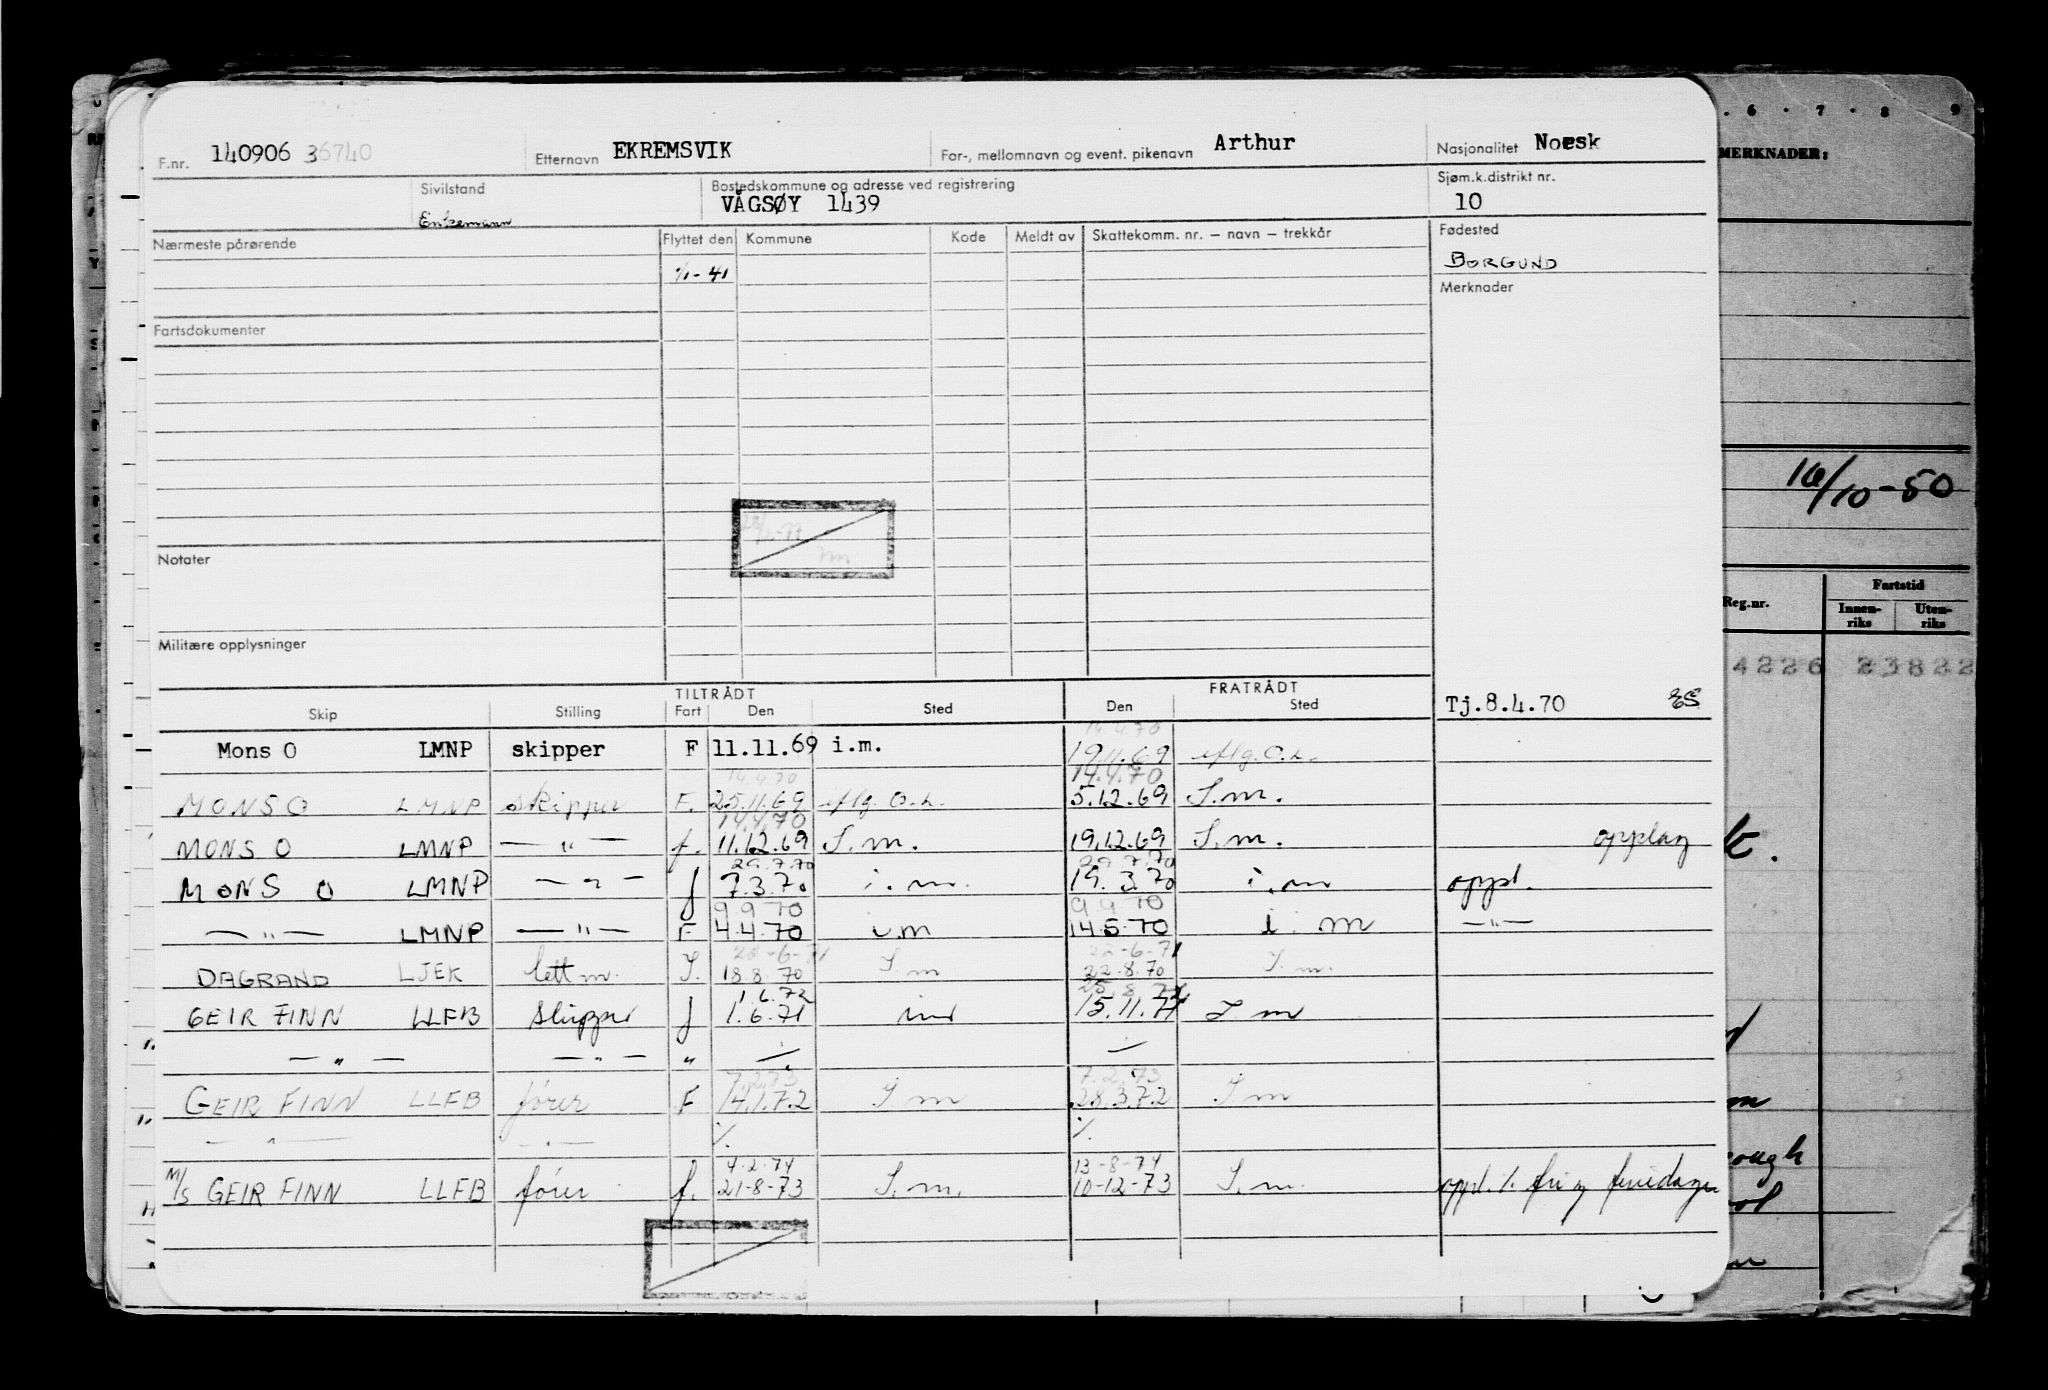 F.nr. 140906 36740 Etternavn EKREMSVIK For-, mellomnavn og event. pikenavn Arthur Nasjonalitet Norsk
Sivilstand Enkemann Bostedskommune og adresse ved registrering VÅGSØY 1439 Sjøm.k.distrikt nr. 10
Nærmeste pårørende Flyttet den Kommune Kode Meldt av Skattekomm. nr. – navn – trekkår Fødested
1/1-41 BORGUND
Merknader
Fartsdokumenter
Notater
Militære opplysninger
TILTRÅDT FRATRÅDT
Skip Stilling Fart Den Sted Den Sted Tj.8.4.70 ES
14.4.70
Mons O LMNP skipper F 11.11.69 i.m. 19.11.69 iflg. O.L.
14.4.70 14.4.70
MONS O LMNP skipper F. 25.11.69 iflg. O.L. 5.12.69 I.m.
14.4.70
MONS O LMNP — " — f. 11.12.69 I.m. 19.12.69 I.m. opplag
29.7.70 29.7.70
MONS O LMNP — " — f 7.3.70 i.m. 19.3.70 i.m oppl.
9.9.70 9.9.70
— " — LMNP — " — F 4.4.70 i.m 14.5.70 i.m — " —
22-6-71 22-6-71
DAGRAND LJEK lettm. I. 18.8.70 I.m 22.8.70 I.m.
1.6.72
GEIR FINN LLFB skipper f 1.6.71 inr 15.11.71 I m
— " — — " — " ⁒ ⁒
7.2.73 7.2.73
GEIR FINN LLFB fører F 14.1.72 I m 28.3.72 I.m
— " — — " — ⁒ ⁒
4-2-74 13-8-74
M/S GEIR FINN LLFB fører f. 21-8-73 I.m. 10-12-73 I.m. oppl. ⁒ fri og feriedager
6 · 7 · 8 9
MERKNADER:
16/10-50
Reg.nr. Fartstid
Innen-riks Uten-riks
4226 23822